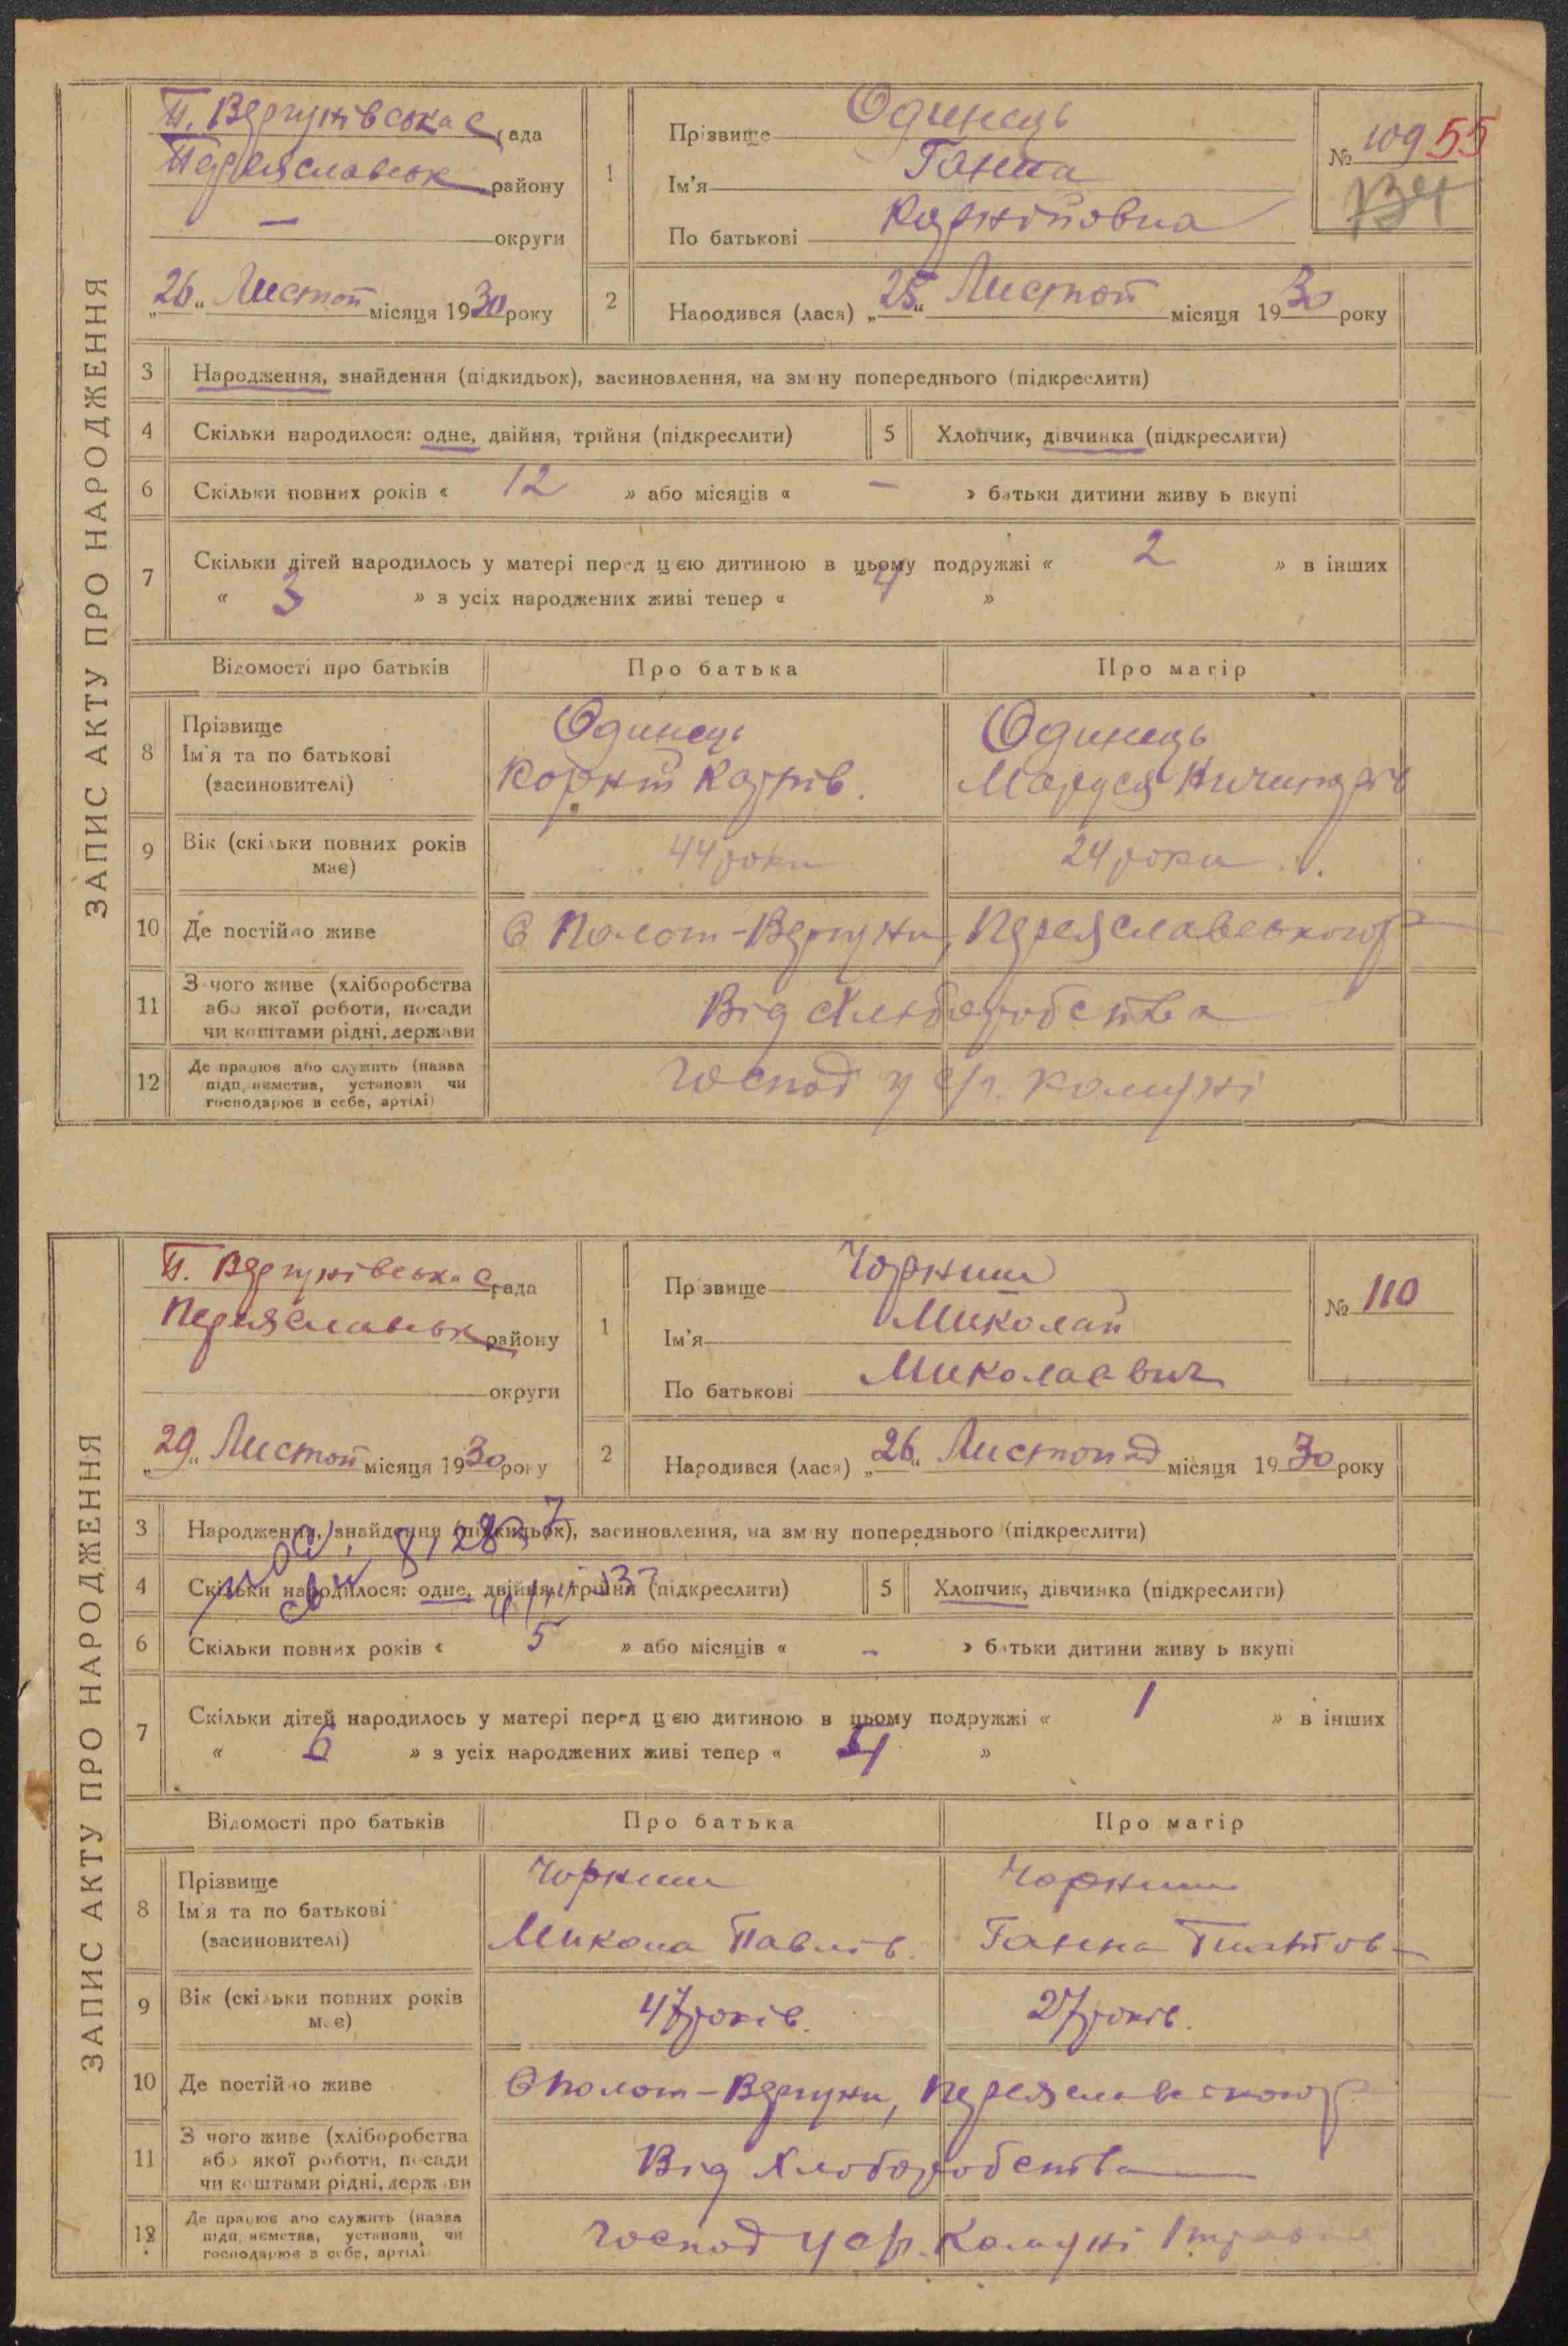 ЗАПИС АКТУ ПРО НАРОДЖЕННЯ
П. Вергунівська с/рада
Переяславськ району
— округи
„26“ Листоп місяця 1930 року
1
Прізвище Одинець
Ім'я Ганна
По батькові Корніївна
№ 109 55
2
Народився (лася) „25“ Листоп місяця 1930 року
3 Народження, знайдення (підкидьок), засиновлення, на зміну попереднього (підкреслити)
4 Скільки народилося: одне, двійня, трійня (підкреслити)
5 Хлопчик, дівчинка (підкреслити)
6 Скільки повних років « 12 » або місяців « — » батьки дитини живуть вкупі
7 Скільки дітей народилось у матері перед цією дитиною в цьому подружжі « 2 » в інших
« 3 » з усіх народжених живі тепер « 4 »
Відомості про батьків Про батька Про матір
8 Прізвище Одинець Одинець
Ім'я та по батькові Корній Карпів. Маруся
(засиновителі)
9 Вік (скільки повних років має) 44 роки 24 роки
10 Де постійно живе С Полот-Вергуни, Переяславського р
11 З чого живе (хліборобства або якої роботи, посади чи коштами рідні, держави Від Хліборобства
12 Де працює або служить (назва підприємства, установи чи господарює в себе, артілі) Господ у с/г. комуні
ЗАПИС АКТУ ПРО НАРОДЖЕННЯ
П. Вергунівська с/рада
Переяславськ району
округи
„29“ Листоп місяця 1930 року
1
Прізвище Чорниш
Ім'я Миколай
По батькові Миколаєвич
№ 110
2
Народився (лася) „26“ Листопад місяця 1930 року
3 Народження, знайдення (підкидьок), засиновлення, на зміну попереднього (підкреслити)
4 Скільки народилося: одне, двійня, трійня (підкреслити)
5 Хлопчик, дівчинка (підкреслити)
6 Скільки повних років « 5 » або місяців « — » батьки дитини живуть вкупі
7 Скільки дітей народилось у матері перед цією дитиною в цьому подружжі « 1 » в інших
« 6 » з усіх народжених живі тепер « »
Відомості про батьків Про батька Про матір
8 Прізвище Чорниш Чорниш
Ім'я та по батькові Микола Павлів. Ганна
(засиновителі)
9 Вік (скільки повних років має) 47 років. 27 років.
10 Де постійно живе С Полот-Вергуни, Переяславського р
11 З чого живе (хліборобства або якої роботи, посади чи коштами рідні, держави Від Хліборобства
12 Де працює або служить (назва підприємства, установи чи господарює в себе, артілі) Господ у с/г. Комуні 1 травня